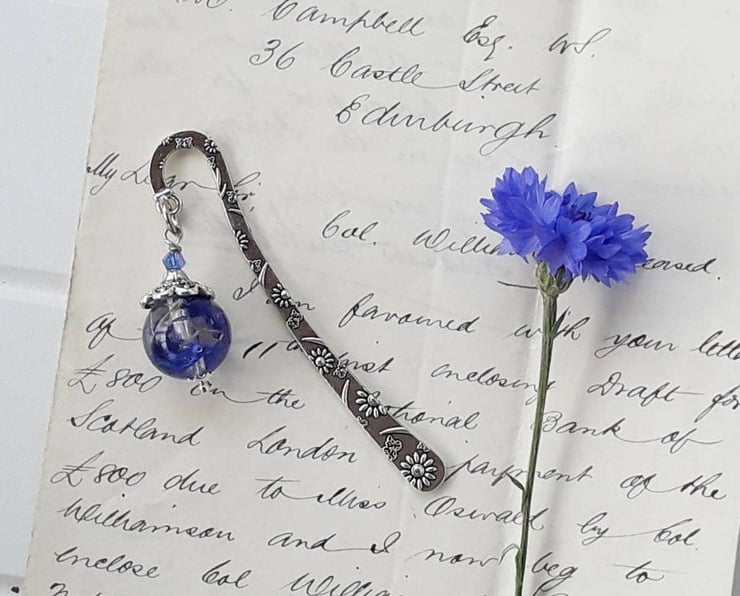 Campbell Esq. W.S.
36 Castle Street
Edinburgh
My Dear Sir,
Col. Willi eased.
I am favoured with your lette
of 11th inst enclosing Draft for
£800 on the tional Bank of
Scotland London payment of the
£800 due to Miss Oswald by Col.
Williamson and I now beg to
enclose Col Willia